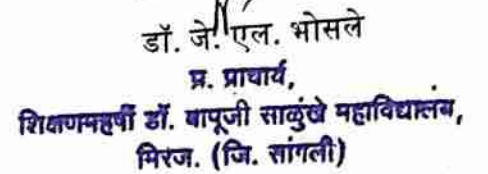 डॉ. जे. एल. भोसले
प्र. प्राचार्य,
शिक्षणमहर्षी डॉ. बापूजी साळुंखे महाविद्यालय,
मिरज. (जि. सांगली)